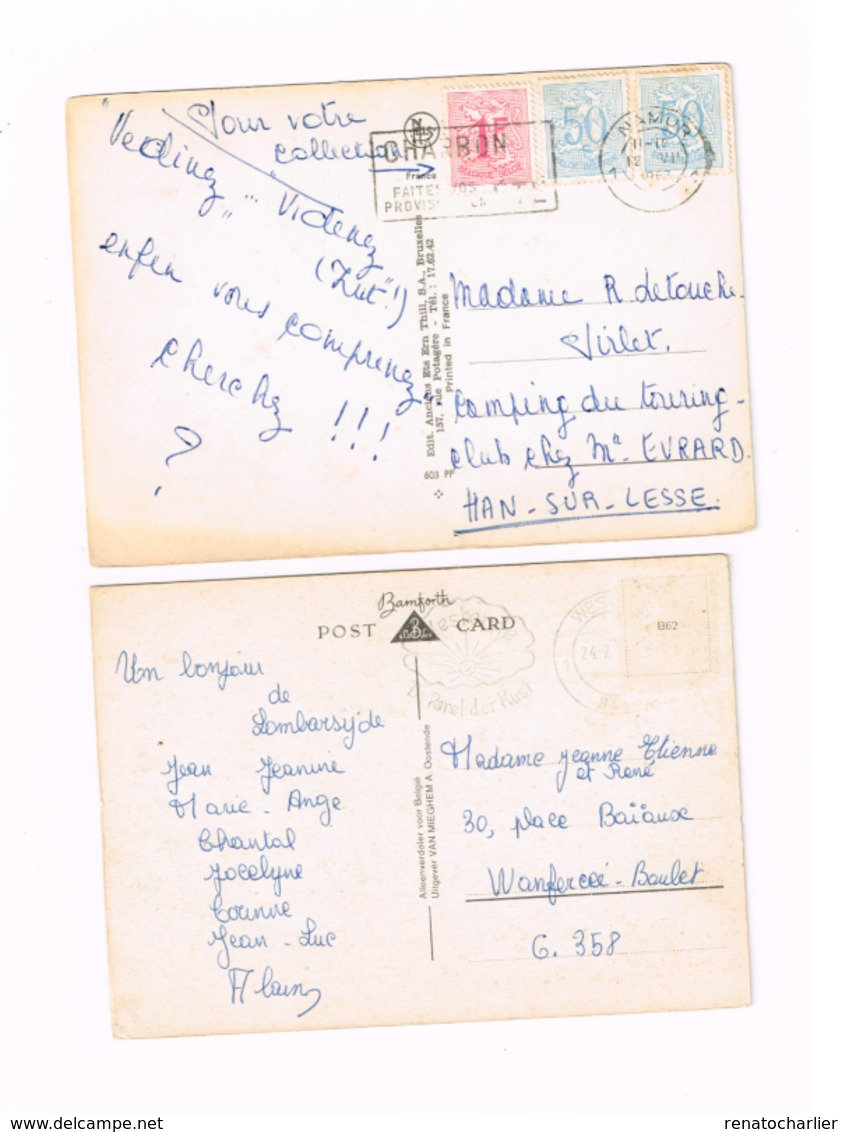 Pour votre
collection
"Vedinez"... Videnez
(Zut"!)
enfin vous comprenez
cherchez !!!
?
CHARBON
FAITES VOS
PROVIS
LA
France
1F
BELGIQUE-BELGIE
50
50
NAMUR
Edit. Anciens Ets Ern Thill, S.A., Bruxelles
157, rue Potagère - Tél. : 17.62.42
Printed in France
603 PF
Madame R. detouche-
Virlet.
Camping du touring-
club chez Me. EVRARD.
HAN-SUR-LESSE.
Bamforth
POST CARD
De Parel der Kust
WES
24.7
B62
Un bonjour
de
Lombarsijde
Jean Jeanine
Marie-Ange
Chantal
Jocelyne
Corinne
Jean-Luc
Alain
Alleenverdeler voor België
Uitgever VAN MIEGHEM A. Oostende
Madame Jeanne Etienne
et René
30, place Baïaux
Wanfercée-Baulet
6. 358
delcampe.net
renatocharlier